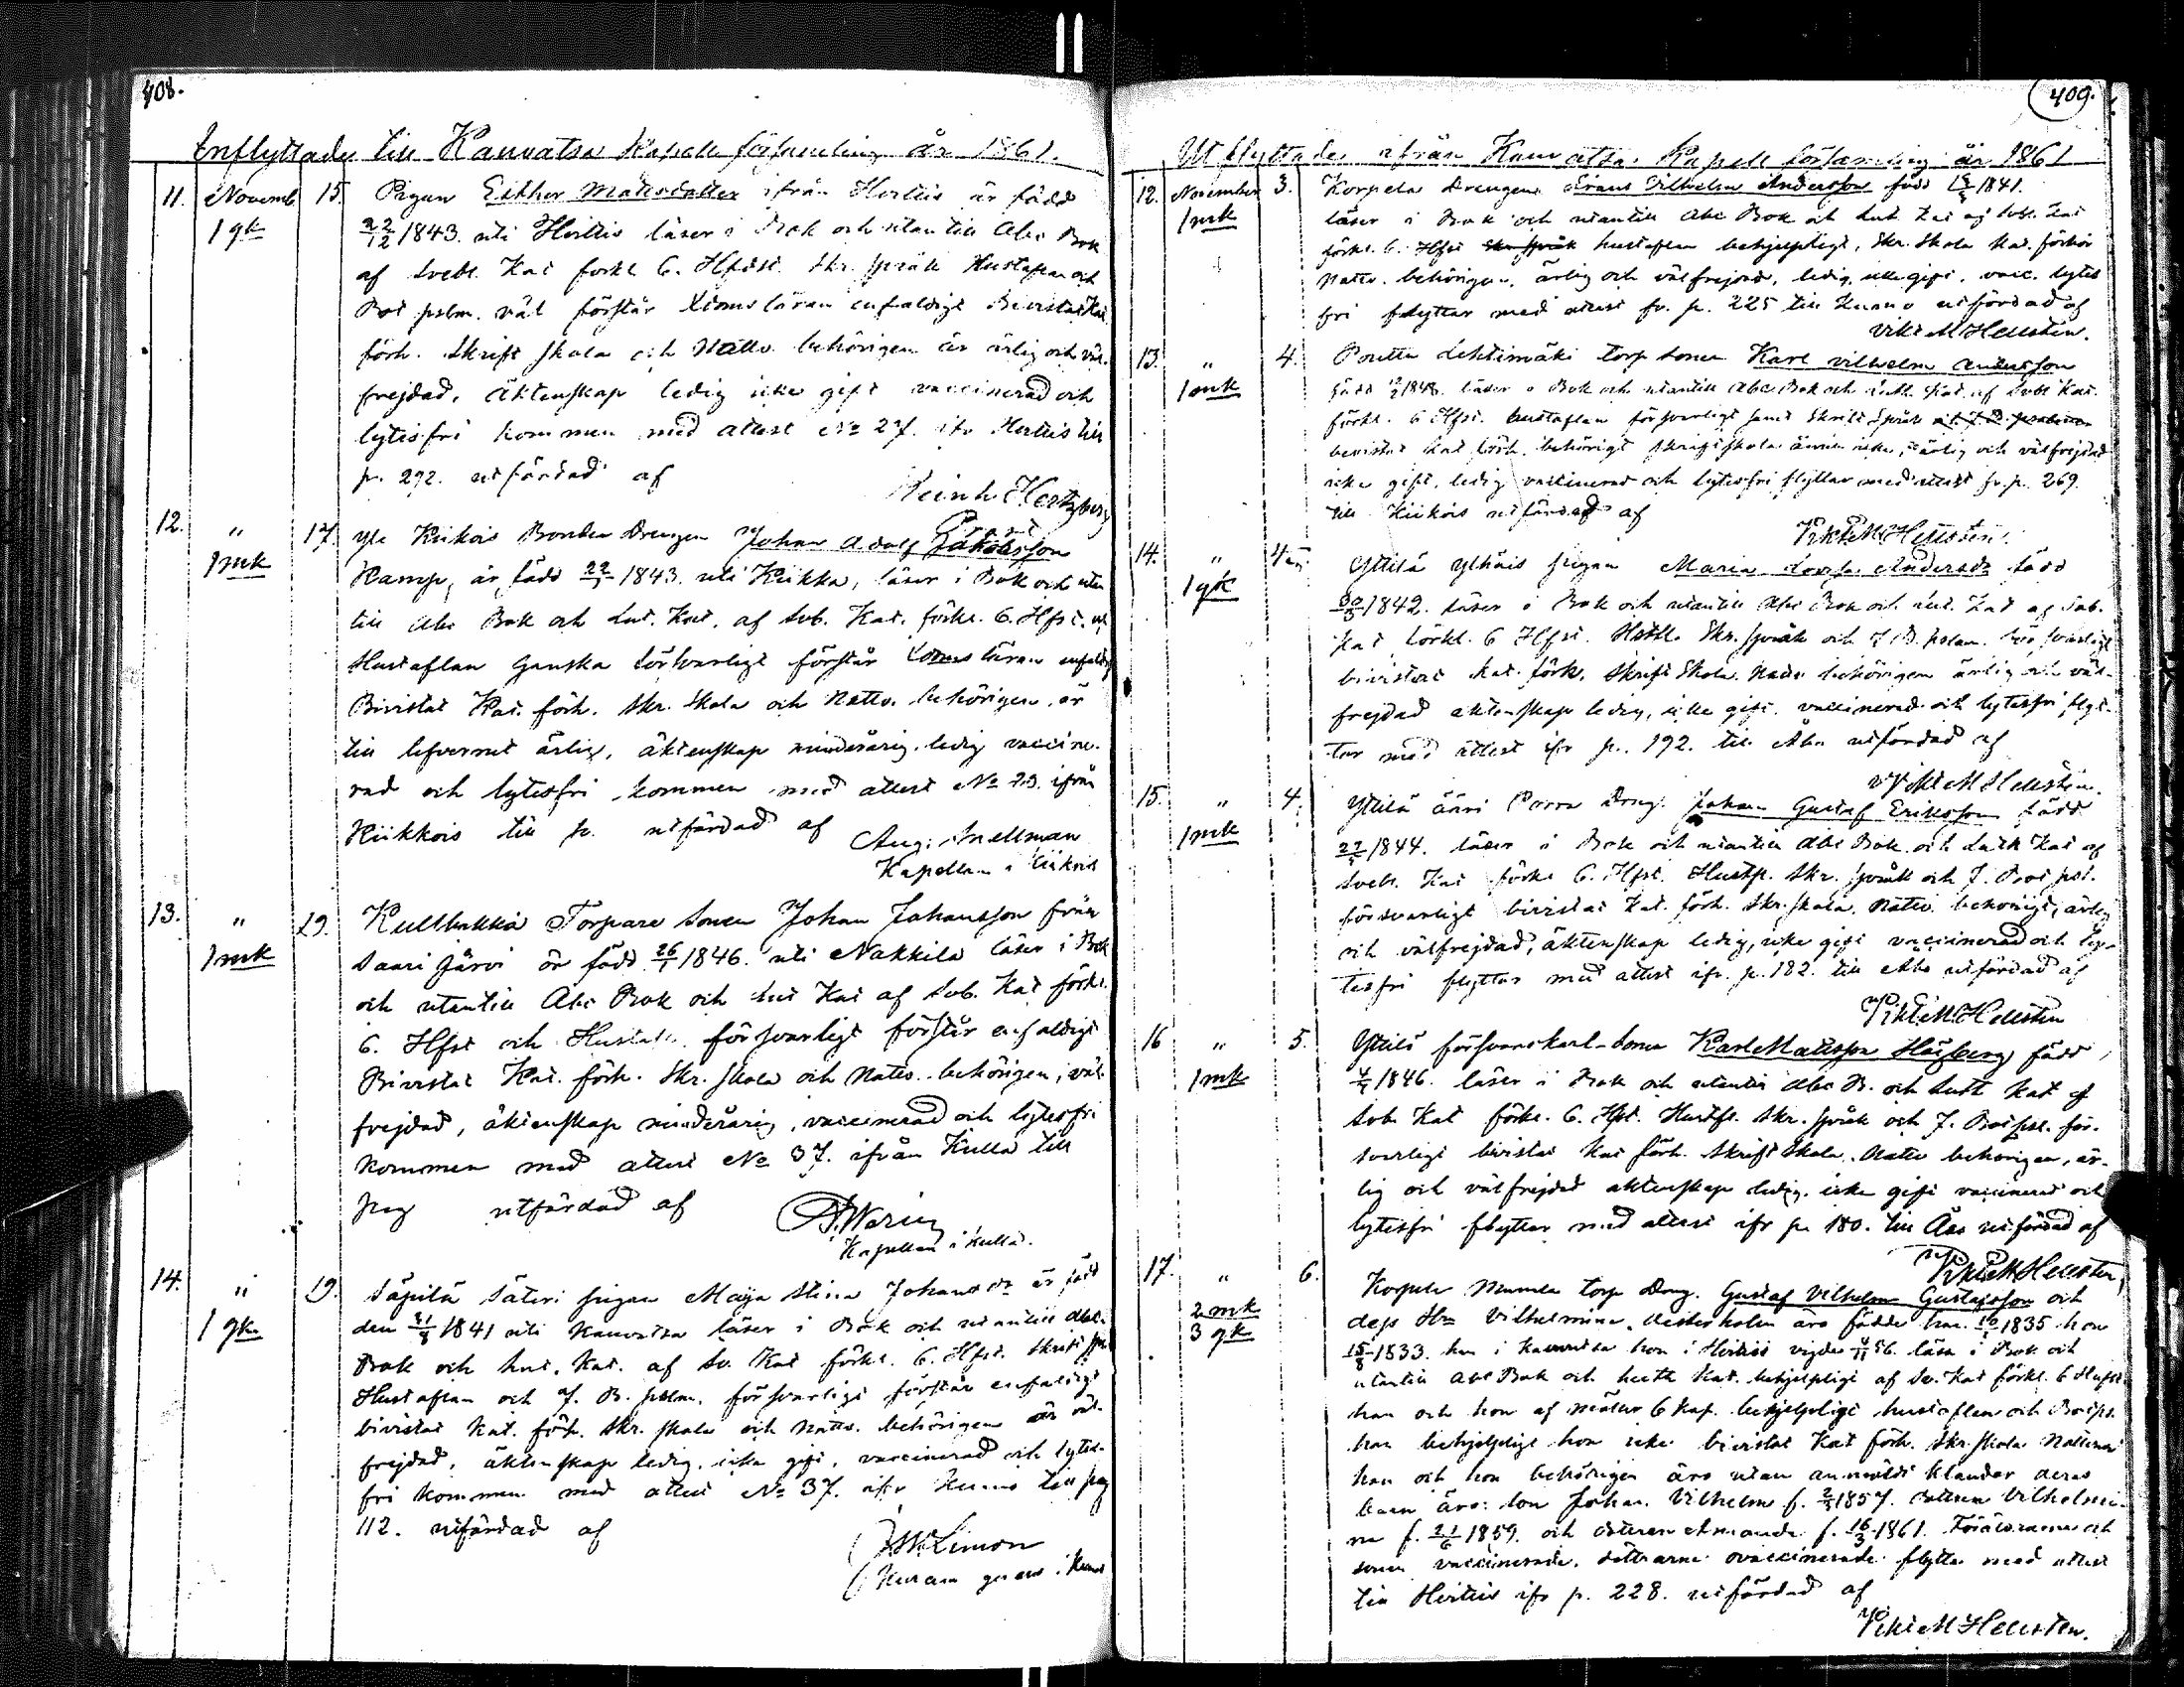 408.
Inflyttade till Kauvatsa Kapell församling år 1861.
11. Novemb 15. Pigan Esther Matsdotter ifrån Hvittis är född
1 qk 22/12 1843. uti Hvittis läser i Bok och utan till Abc Bok
af Svebl. Kat förkl. 6. Hfst. Skr. språk Hustaflan och
Bot pslm. väl förstår enfaldigt Bivistat Kat.
förh. Skrift skola och Nattv. behörigen är ärlig och väl-
frejdad, äktenskap ledig icke gift vaccinerad och
lytesfri kommen med attest No 27. ifr Hvittis till
p. 292. utfärdad af
Reinh. Hertzberg
12. " 17. Yle Kiikois Bonden Drengen Johan Adolf
1 mk Kamp, är född 22/1 1843. uti Kiikka, läser i Bok och utan
till Abc Bok och Lut. Kat. af Svb. Kat. förkl. 6. Hfst.
Hustaflan Ganska försvarligt förstår enfaldigt
Bivistat Kat. förh. Skr. Skola och Nattv. behörigen, är
till lefvernet ärlig, äktenskap minderårig ledig vaccine-
rad och lytesfri kommen med attest No ifrån
Kiikkois till p. utfärdad af
Aug. Snellman
Kapellan i Kiikois
13. " 19. Torpare Sonen Johan Johansson från
1 mk Saarijärvi är född 26/1 1846. uti Nakkila läser i Bok
och utantill Abc Bok och Lut Kat af Svb. Kat förkl.
6. Hfst och Hustafl. försvarligt förstår enfaldigt
Bivistat Kat. förh. Skr. skola och Nattv. behörigen, väl-
frejdad, äktenskap minderårig, vaccinerad och lytesfri
kommen med attest No 37. ifrån Kulla till
pag utfärdad af
Kapellan i Kulla.
14. " 19. Säpilä Säteri pigan Maja Stina Johansdr är född
1 qk. den 31/8 1841 uti Kauvatsa läser i Bok och utantill Abc
Bok och Lut. Kat. af Sv. Kat förkl. 6. Hfst. Skrift språk
Hustaflan och 7. B. pslm. försvarligt förstår enfaldigt
bivistat Kat. förh. Skr. skola och Nattv. behörigen är väl-
frejdad, äktenskap ledig, icke gift, vaccinerad och lytes-
fri kommen med attest No 37. ifr Kumo till pag
112. utfärdad af
409.
Utflyttade ifrån Kauvatsa Kapell församling år 1861
12. November 3. Korpela Drengen Frans Vilhelm Andersson född 1841.
1 mk läser i Bok och utantill Abc Bok och Lut. Kat af Svbl. Kat
förkl. 6. Hfst hustaflan behjelpligt, Skr. Skola Kat. förhör
Nattv. behörigen, ärlig och välfrejdad, ledig, icke gift, vacc. lytes
fri flyttar med attest fr. p. 225 till Kumo utfärdad af
Vikt M Hellstén.
13. " 4. Lehtimäki torp Sonen Karl Vilhelm Andersson
1 mk född 1848. läser i Bok och utantill Abc Bok och Luth. Kat. af Svbl Kat.
förkl. 6 Hfst. hustaflan försvarligt samt Skrift Språk
bevistat Kat förh. behörigt skriftskola ännu icke, ärlig och välfrejdad
icke gift, ledig vaccinerad och lytesfri flyttar med attest fr. p. 269.
till Kiikois utfärdad af
Vikt M Hellstén.
14. " 4 Yttilä pigan Maria Lovisa Andersdr född
1 qk 1842. läser i Bok och utantill Abc Bok och Lut. Kat af Svb.
Kat förkl. 6 Hfst. Hstfl. Skr. språk och 7 B. pslm. försvarligt
bivistat Kat. förh, Skrift Skola. Nattv behörigen ärlig och väl-
frejdad äktenskap ledig, icke gift. vaccinerad och lytesfri, flyt-
tar med attest ifr p. 192. till Åbo utfärdad af
Vikt M Hellstén.
15. " 4. Yttilä Drng. Johan Gustaf Eriksson född
1 mk 1844. läser i Bok och utantill Abc Bok och Luth Kat af
Svebl. Kat förkl 6. Hfst. Hustfl. Skr. språk och 7. Bot psl.
försvarligt bivistat Kat. förh. Skr. skola. Nattv. behörigt, ärlig
och välfrejdad, äktenskap ledig, icke gift vaccinerad och ly-
tesfri flyttar med attest ifr. p. 182. till Åbo utfärdad af
Vikt M Hellstén
16 " 5. Yttilä försvarskarl-Sonen Karl Matsson född
1 mk 1846. läser i Bok och utantill Abc B. och Luth Kat af
Svb. Kat förkl. 6. Hfst. Hustfl. Skr. språk och 7. Bot psl. för-
svarligt bivistat Kat förh. Skrift Skola. Nattv behörigen, är-
lig och välfrejdad äktenskap ledig. icke gift vaccinerad och
lytesfri flyttar med attest ifr p. 180. till Åbo utfärdad af
Vikt M Hellstén
17. " 6. Korpela torp Drng. Gustaf Vilhelm Gustafsson och
2 mk dess Vilhelmina. äro födde han 1835 hon
3 qk 1833. han i Kauvatsa hon i Hvittis vigde 56. läsa i Bok och
utantill Abc Bok och Luth Kat. behjelpligt af Sv. Kat förkl. 6 Hufst
han och hon af 6 Kap. behjelpligt hustaflan och Botps.
han behjelpligt hon icke bivistat Kat förh. Skr. skola
han och hon behörigen äro utan anmäldt klander deras
barn äro: Son Johan Vilhelm f. 1857. dottren Vilhelmi-
na f. 21/6 1859. och dottren Amanda f. 16/3 1861. Föräldrarne och
sonen vaccinerade. döttrarne ovaccinerade flytta med attest
till Hvittis ifr p. 228. utfärdad af
Vikt M Hellstén.